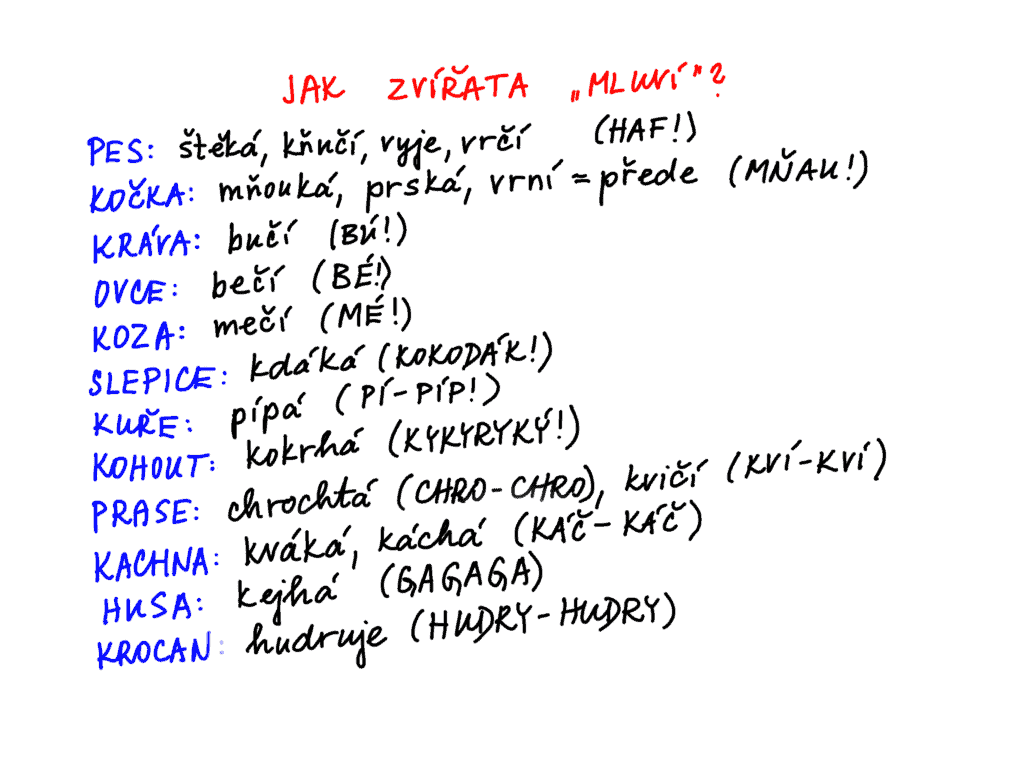 JAK ZVÍŘATA „MLUVÍ"?
PES: štěká, kňučí, vyje, vrčí (HAF!)
KOČKA: mňouká, prská, vrní = přede (MŇAU!)
KRÁVA: bučí (BÚ!)
OVCE: bečí (BÉ!)
KOZA: mečí (MÉ!)
SLEPICE: kdáká (KOKODÁK!)
KUŘE: pípá (PÍ-PÍP!)
KOHOUT: kokrhá (KYKYRYKÝ!)
PRASE: chrochtá (CHRO-CHRO), kvičí (KVÍ-KVÍ)
KACHNA: kváká, káchá (KÁČ-KÁČ)
HUSA: kejhá (GAGAGA)
KROCAN: hudruje (HUDRY-HUDRY)